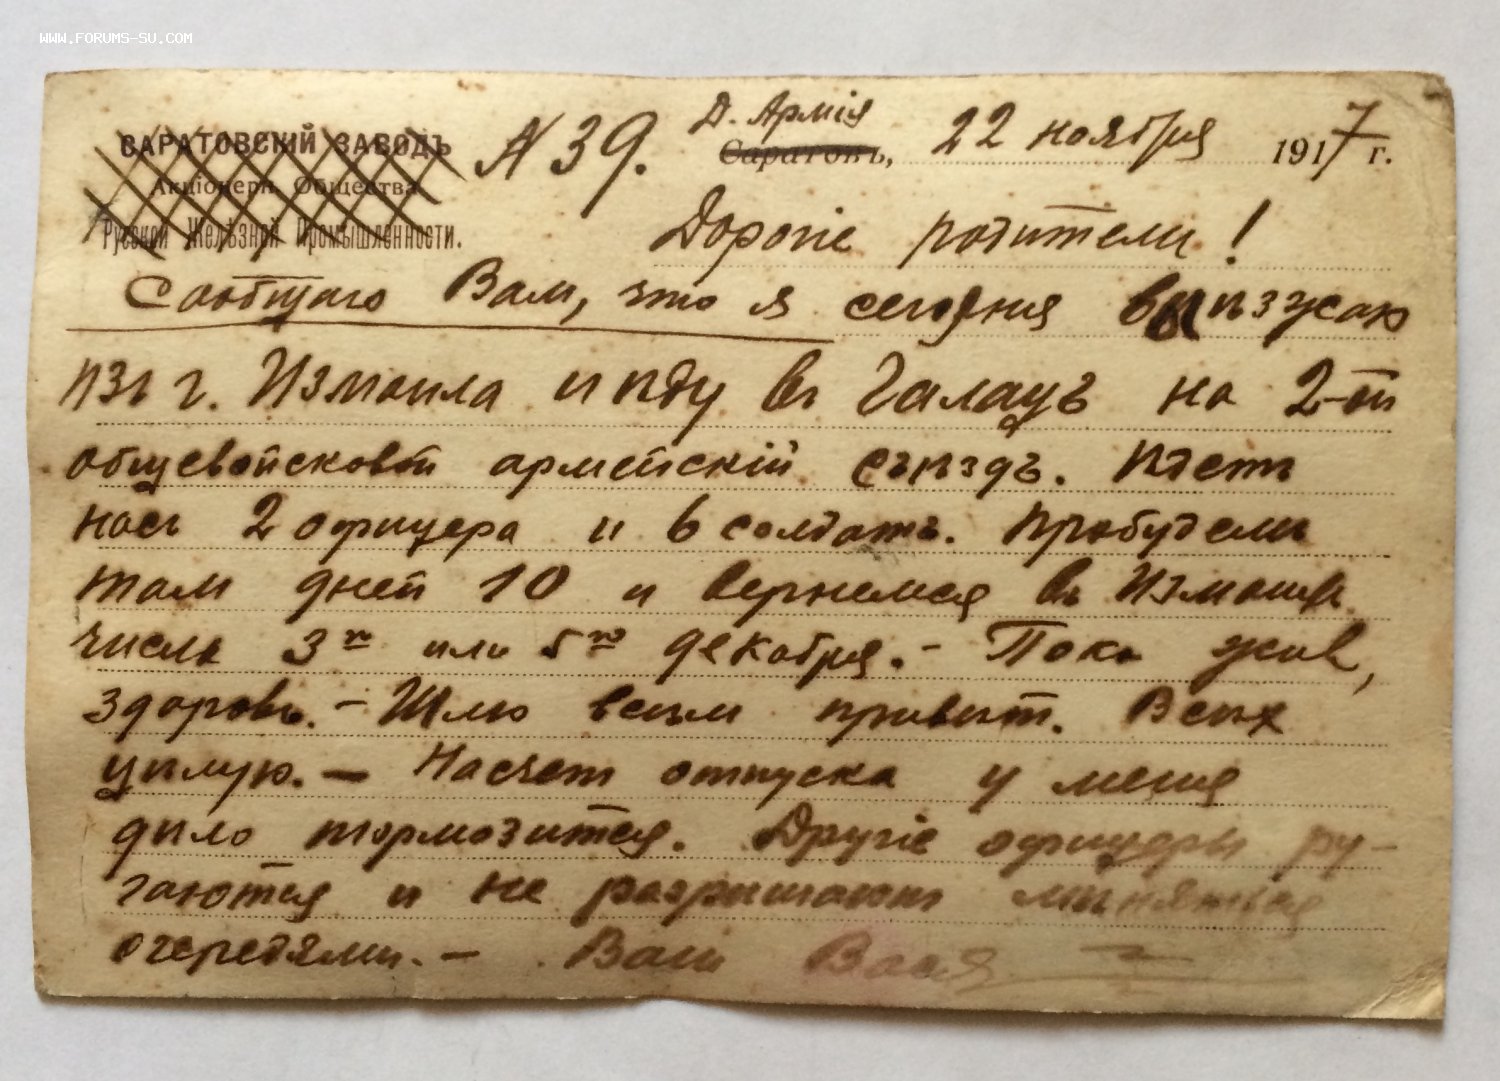 WWW.FORUMS-SU.COM
САРАТОВСКІЙ ЗАВОДЪ
Акціонерн. Общества
Русской Желѣзной Промышленности.
N 39.
Д. Армія
Саратовъ, 22 ноября 1917 г.
Дорогіе родители!
Сообщаю Вам, что я сегодня выѣзжаю
изъ г. Измаила и ѣду въ Галацъ на 2-ой
общевойсковой армейскій съѣздъ. Ѣдетъ
насъ 2 офицера и 6 солдатъ. Пробудемъ
там дней 10 и вернемся въ Измаилъ
числа 3го или 5го декабря. - Пока жив,
здоровъ. - Шлю всѣм привѣт. Всѣх
цѣлую. - Насчет отпуска у меня
дѣло тормозится. Другіе офицеры ру-
гаются и не разрѣшают мѣняться
очередями. - Ваш Вася